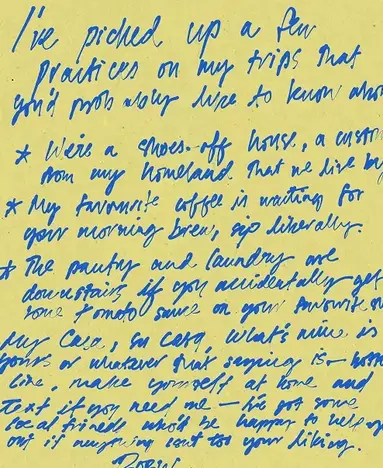 I've picked up a few
practices on my trips that
you'd probably like to know abou
* We're a shoes-off house, a custom
from my homeland that we live by
* My favourite coffee is waiting for
your morning brew, sip liberally.
* The pantry and laundry are
downstairs if you accidentally get
some tomato sauce on your favourite
My casa, su casa, what's mine is
yours or whatever that saying is—
line, make yourself at home and
text if you need me — I've got some
local friends who'd be happy to help you
out if anything isn't to your liking.